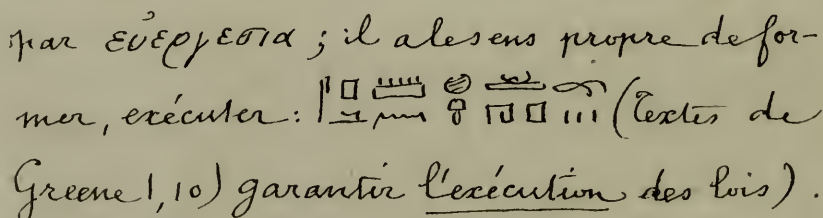 par εὐεργεσία ; il a le sens propre de for-
mer, exécuter : (Textes de
Greene 1, 10) garantir l'exécution des lois).